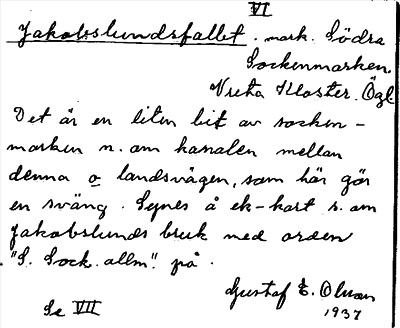 VI
Jakobslundsfallet. mark. Södra
Sockenmarken.
Vreta Kloster. Ögl
Det är en liten bit av socken-
marken n. om kanalen mellan
denna o landsvägen, som här gör
en sväng. Synes å ek-kart s. om
Jakobslunds bruk med orden
"S. Sock. allm." på.
Gustaf E. Olsson
1937
Se VII